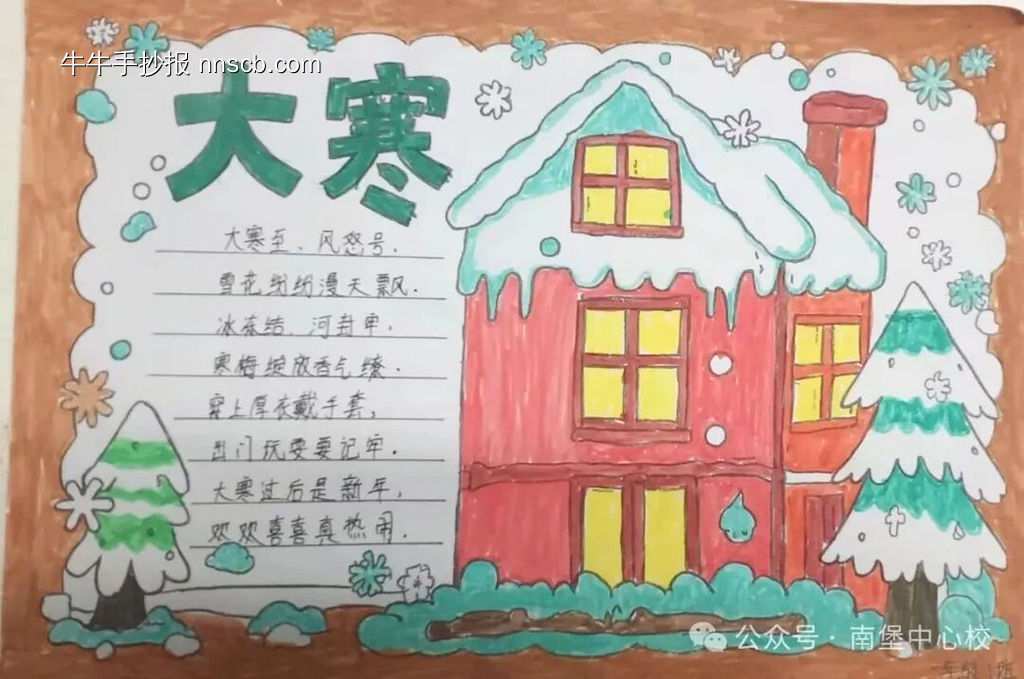 牛牛手抄报 nnscb.com
大寒
大寒至，风怒号，
雪花纷纷漫天飘.
冰冻结，河封牢，
寒梅绽放香气缭.
穿上厚衣戴手套，
出门玩耍要记牢.
大寒过后是新年，
欢欢喜喜真热闹.
公众号·南堡中心校